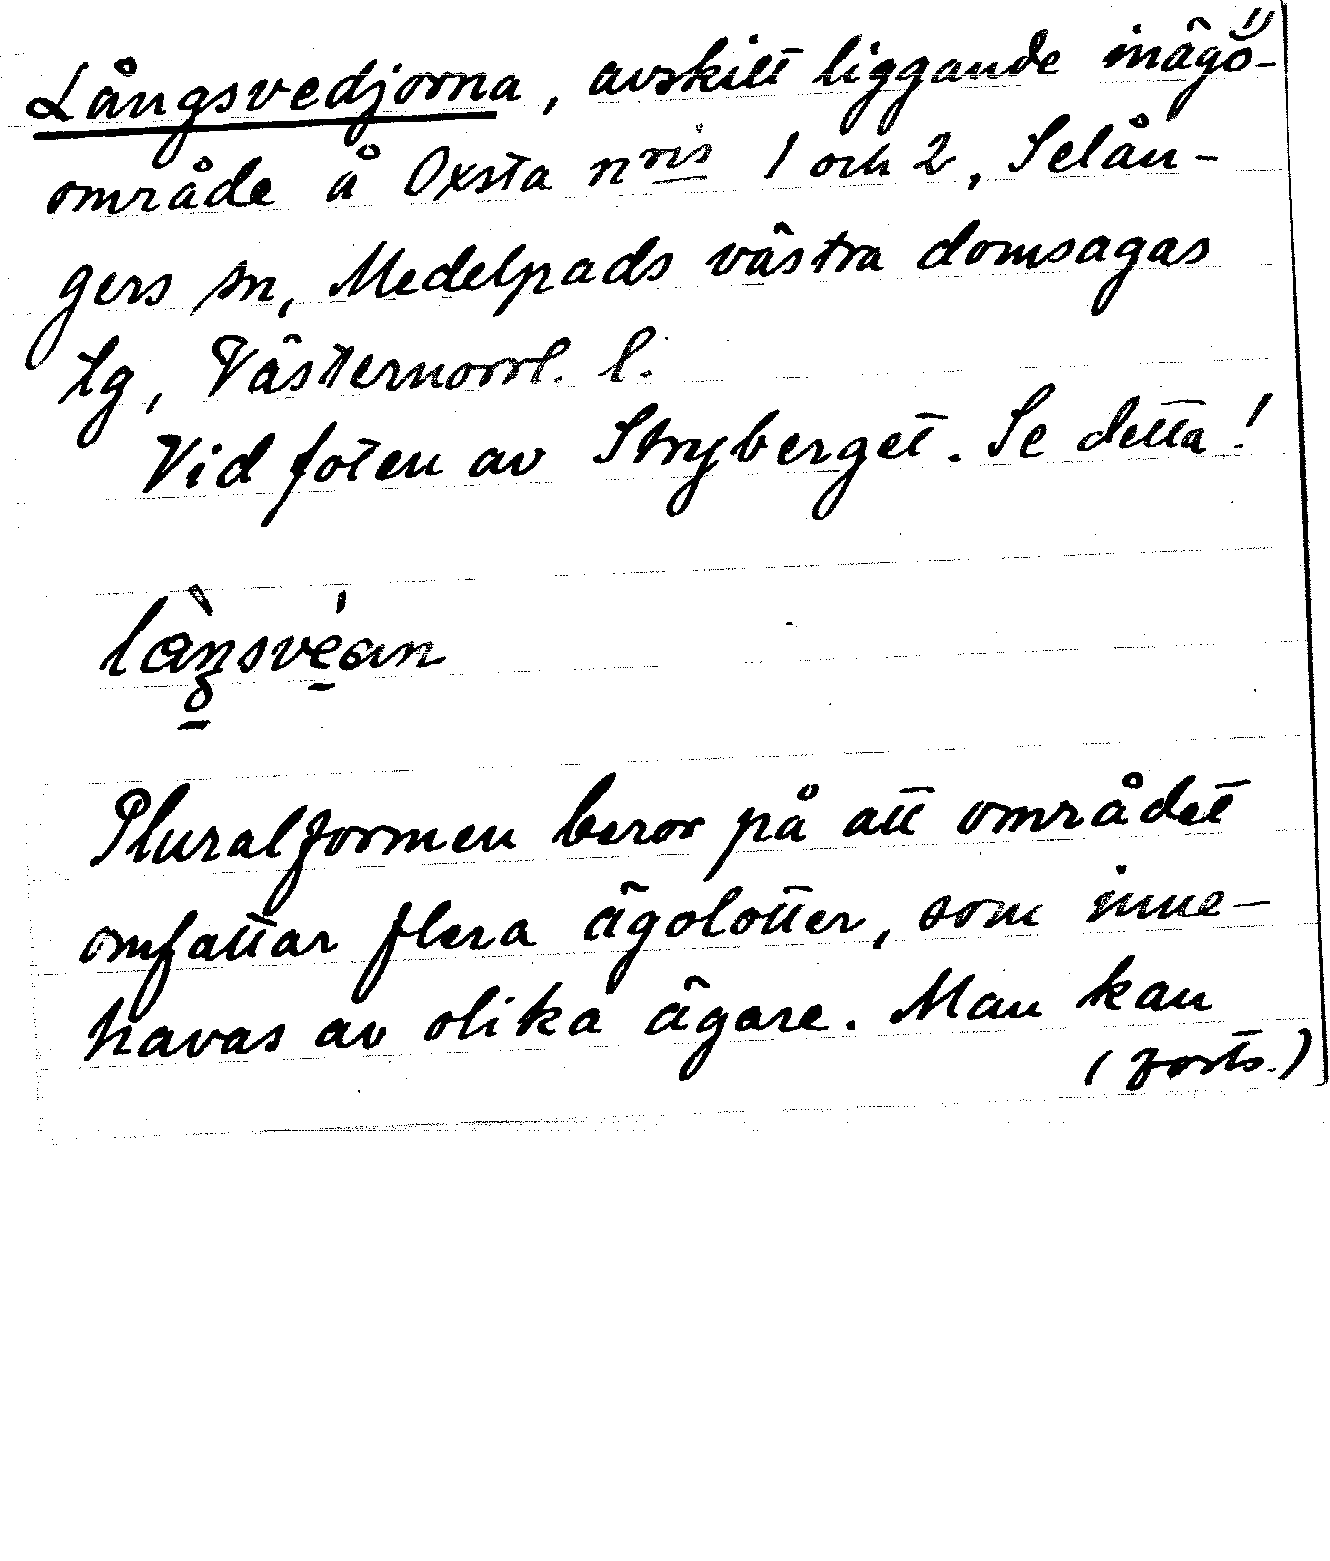 Långsvedjorna, avskilt liggande inägo-
område å Oxsta nris 1 och 2, Selån-
gers sn, Medelpads västra domsagas
tg, Västernorrl. l.
Vid foten av Stryberget. Se detta!
Pluralformen beror på att området
omfattar flera ägolotter, som inne-
havas av olika ägare. Man kan
(forts.)